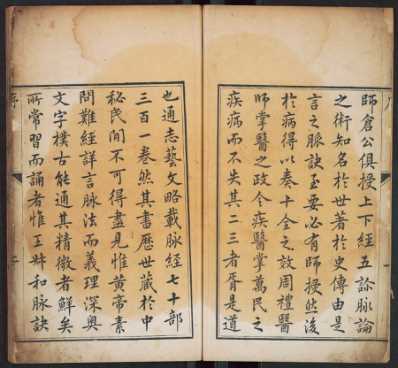 師倉公俱授上下經五診脈論
之術知名於世著於史傳由是
言之脈訣至要必有師授然後
於病得以奏十全之效周禮醫
師掌醫之政令疾醫掌萬民之
疾病而不失其二三者胥是道
也通志藝文略載脉經七十部
三百一卷然其書歷世藏於中
秘民間不可得盡見惟黃帝素
問難經詳言脉法而義理深奥
文字樸古能通其精微者鮮矣
所常習而誦者惟王叔和脉訣
序
二